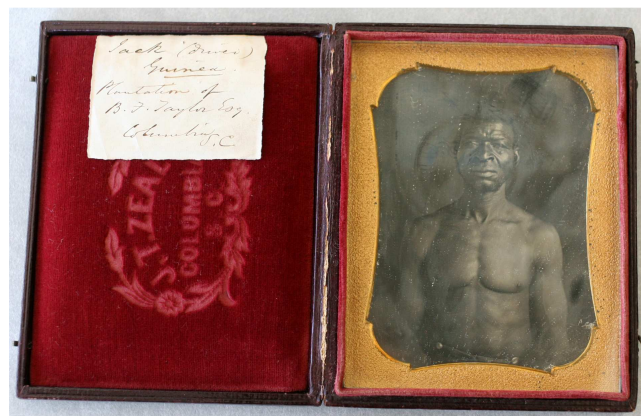 Jack (Driver)
Guinea
Plantation of
B. F. Taylor Esq.
Columbia S.C.
J. T. ZEALY
COLUMBIA
S. C.